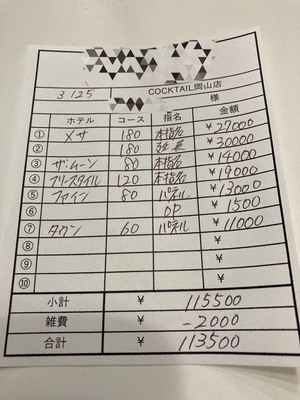 3 125 COCKTAIL岡山店
様
ホテル コース 指名 金額
① メサ 180 本指名 ¥27000
② 180 延長 ¥30000
③ ザ・ムーン 80 本指名 ¥14000
④ フリースタイル 120 本指名 ¥19000
⑤ ファイン 80 パネル ¥13000
⑥ OP ¥1500
⑦ タウン 60 パネル ¥11000
⑧
⑨
⑩
小計 ¥ 115500
雑費 ¥ -2000
合計 ¥ 113500